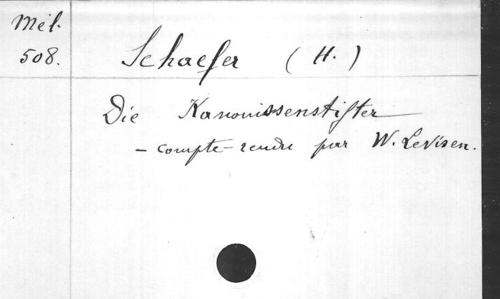 Mél.
508.
Schaefer (H.)
Die Kanonissenstifter
– compte-rendu par W. Levisen.